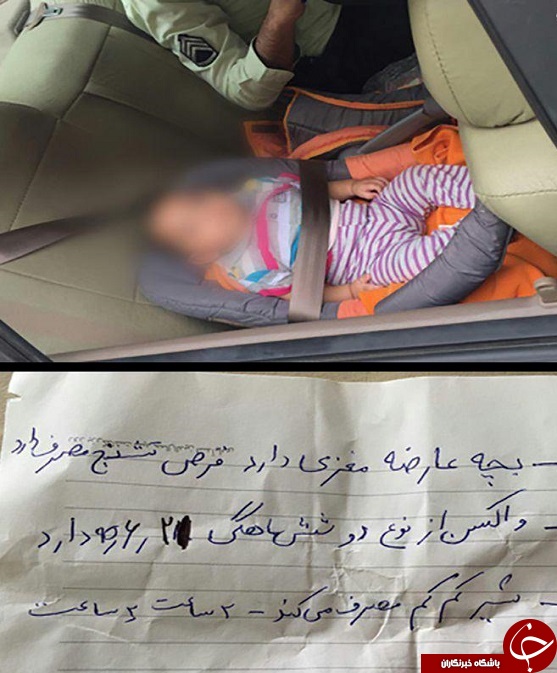 - بچه عارضه مغزی دارد قرص تشنج مصرف دارد
- واکسن از نوع دو شش ماهگی ۹۵٫۶٫۲۱ دارد
- شیر کم کم مصرف می‌کند - ۲ ساعت ۲ ساعت
باشگاه خبرنگاران